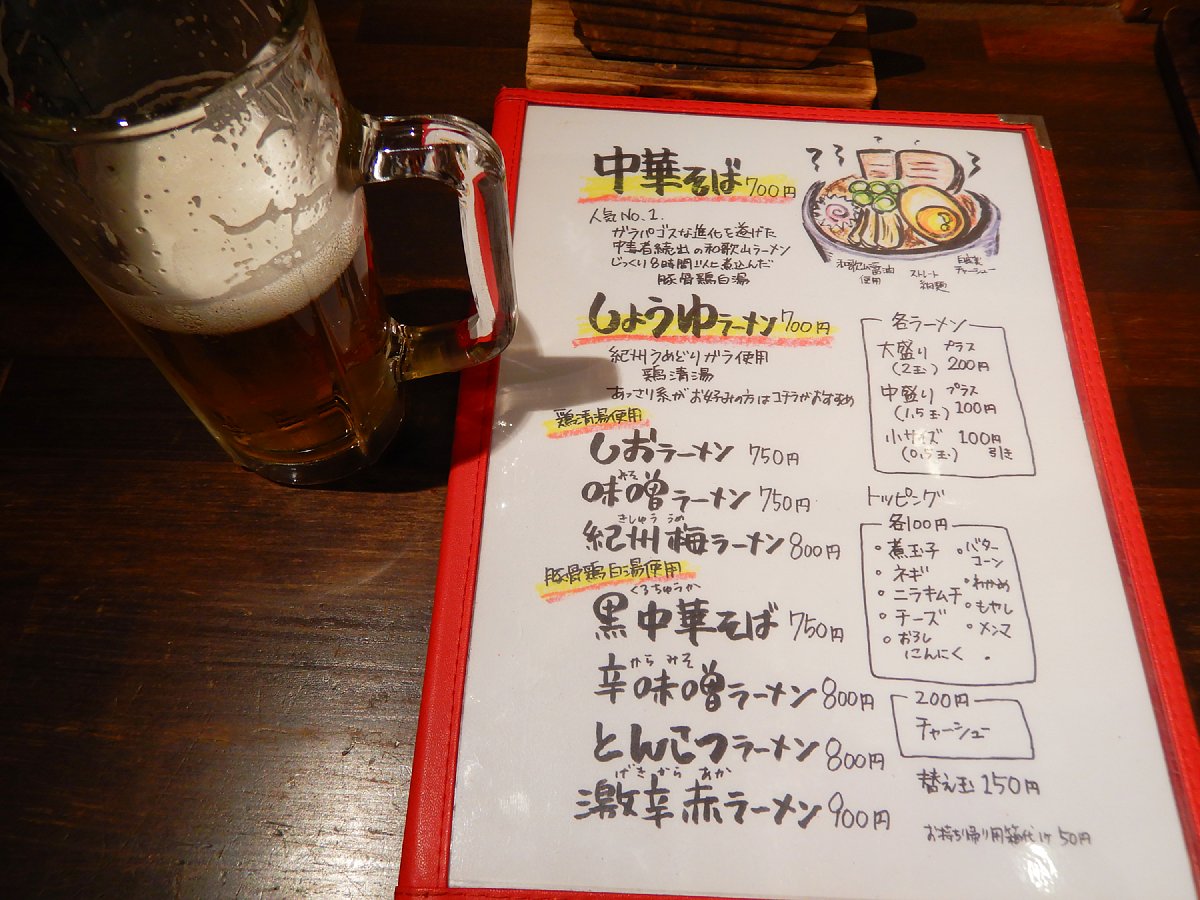 中華そば700円
人気No.1.
ガラパゴスな進化を遂げた
中毒者続出の和歌山ラーメン
じっくり8時間以上煮込んだ
豚骨鶏白湯
和歌山醤油
使用
ストレート
細麺
自家製
チャーシュー
しょうゆラーメン700円
紀州うめどりガラ使用
鶏清湯
あっさり系がお好みの方はコチラがおすすめ
鶏清湯使用
しおラーメン 750円
みそ
味噌ラーメン 750円
きしゅううめ
紀州梅ラーメン800円
豚骨鶏白湯使用
くろちゅうか
黒中華そば 750円
からみそ
辛味噌ラーメン800円
とんこつラーメン800円
げきからあか
激辛赤ラーメン900円
各ラーメン
大盛り プラス
(2玉) 200円
中盛り プラス
(1.5玉) 100円
小サイズ 100円
(0.5玉) 引き
トッピング
各100円
・煮玉子
・ネギ
・ニラキムチ
・チーズ
・おろし
にんにく
・バター
コーン
・わかめ
・もやし
・メンマ
200円
チャーシュー
替え玉150円
お持ち帰り用箱代1ケ50円